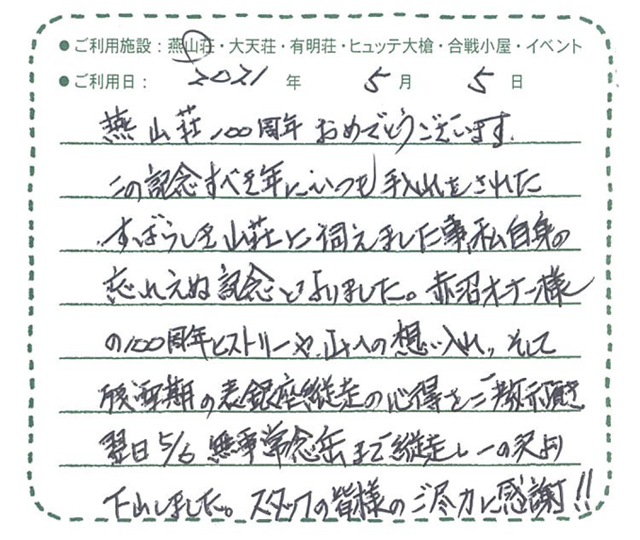 ● ご利用施設：燕山荘・大天荘・有明荘・ヒュッテ大槍・合戦小屋・イベント
● ご利用日： 2021 年 5 月 5 日
燕山荘100周年おめでとうございます。
この記念すべき年にいつも手入れをされた
すばらしき山荘に伺えました事、私自身の
忘れえぬ記念となりました。赤沼オーナー様
の100周年ヒストリーや、山への想い入れ、そして
残雪期の表銀座縦走の心得をご教示頂き
翌日5/6 無事常念岳まで縦走し一の沢より
下山しました。スタッフの皆様のご尽力に感謝!!